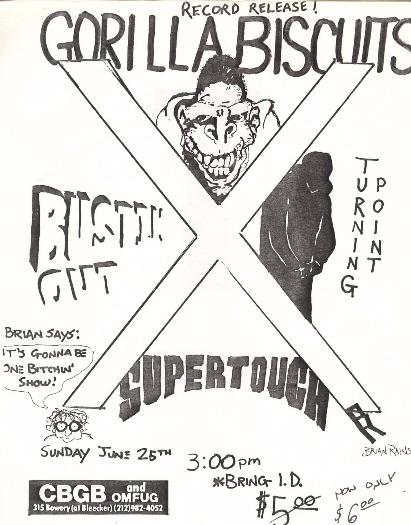 RECORD RELEASE!
GORILLA BISCUITS
TURNING
POINT
BUSTIN
OUT
BRIAN SAYS:
IT'S GONNA BE
ONE BITCHIN'
SHOW!
SUPERTOUCH
BRIAN RAINS
SUNDAY JUNE 25TH
3:00 pm
*BRING I.D.
$5.00
NOW ONLY
$6.00
CBGB and
OMFUG
315 Bowery (at Bleecker) (212) 982-4052